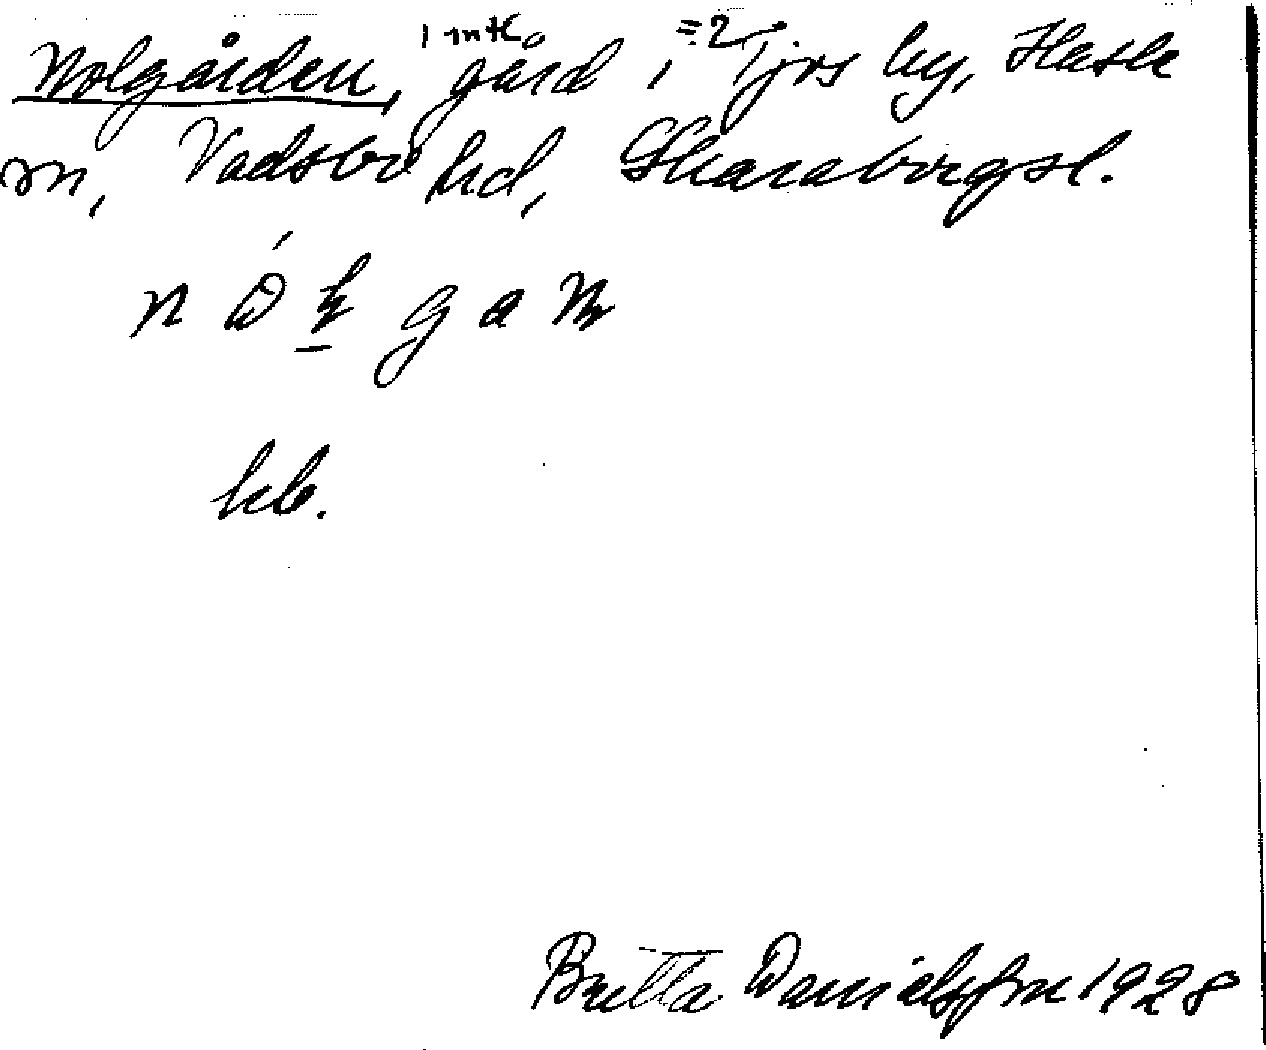 Nolgården, 1 mtl gård i =2 Tjos by, Hassle
sn, Vadsbo hd, Skaraborgsl.
kb.
Britta Danielsson 1928